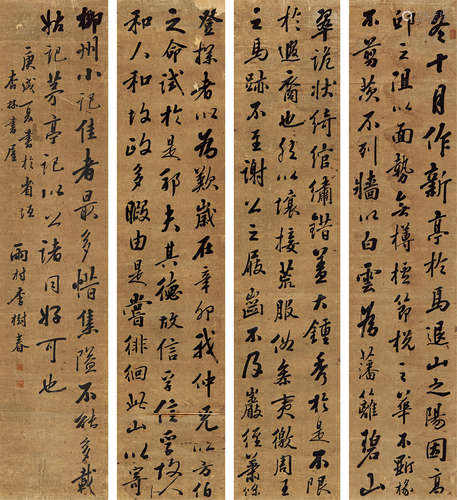 冬十月作新亭於馬退山之陽因高
邱之阻以面勢無欂櫨節梲之華不斲椽
不翦茨不列牆以白雲為藩籬碧山
翠詭狀綺綰繡錯蓋天鍾秀於是不限
於遐裔也然以壤接荒服俗參夷徼周王
之馬跡不至謝公之屐齒不及巖徑蕭條
登探者以為歎歲在辛卯我仲兄以方伯
之命試於是邦夫其德故信孚信孚故人
和人和故政多暇由是嘗徘徊此山以寄
柳州小記佳者最多惜集隘不能多載
姑記茅亭記以公諸同好可也
庚戌夏書於省垣
杏林書屋
雨村李樹春